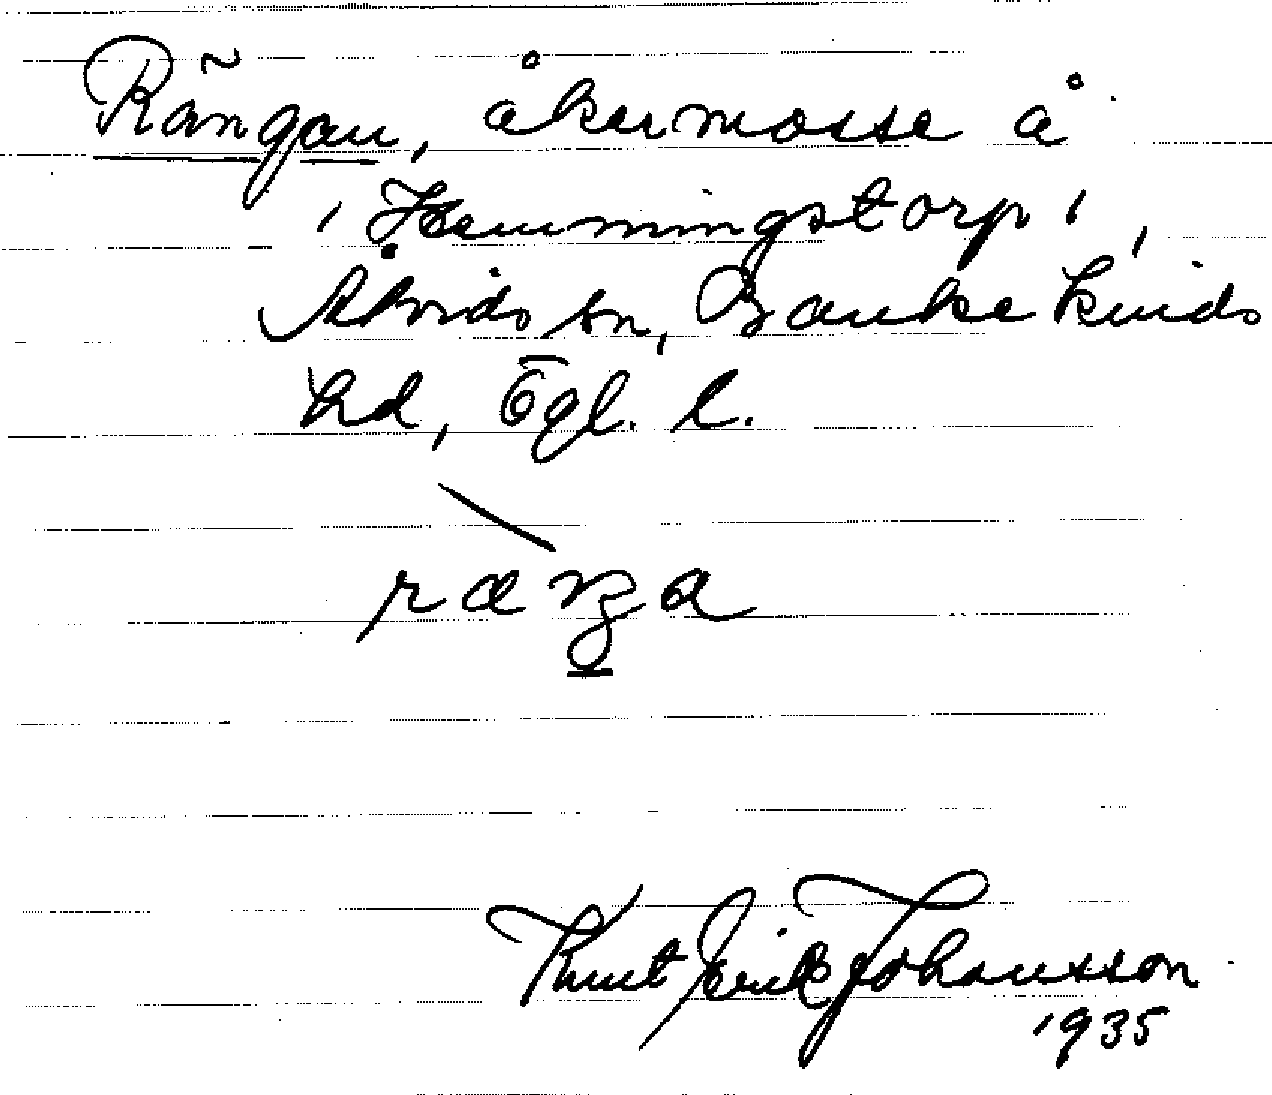 Rängan, åkermosse å
'Hemmingstorp',
Åtvids sn, Bankekinds
hd, Ögl. l.
ræŋa
Knut Erik Johansson
1935